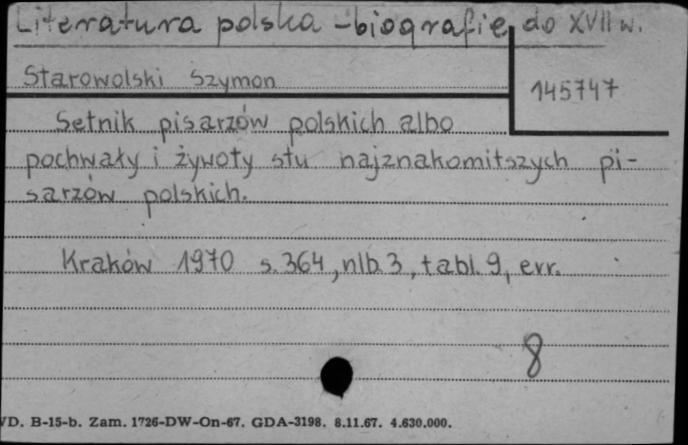 Literatura polska - biografie do XVII w.
Starowolski Szymon
145747
Setnik pisarzów polskich albo
pochwały i żywoty stu najznakomitszych pi-
sarzów polskich.
Kraków 1970 s. 364, nlb. 3, tabl. 9, err.
8
VD. B-15-b. Zam. 1726-DW-On-67. GDA-3198. 8.11.67. 4.630.000.